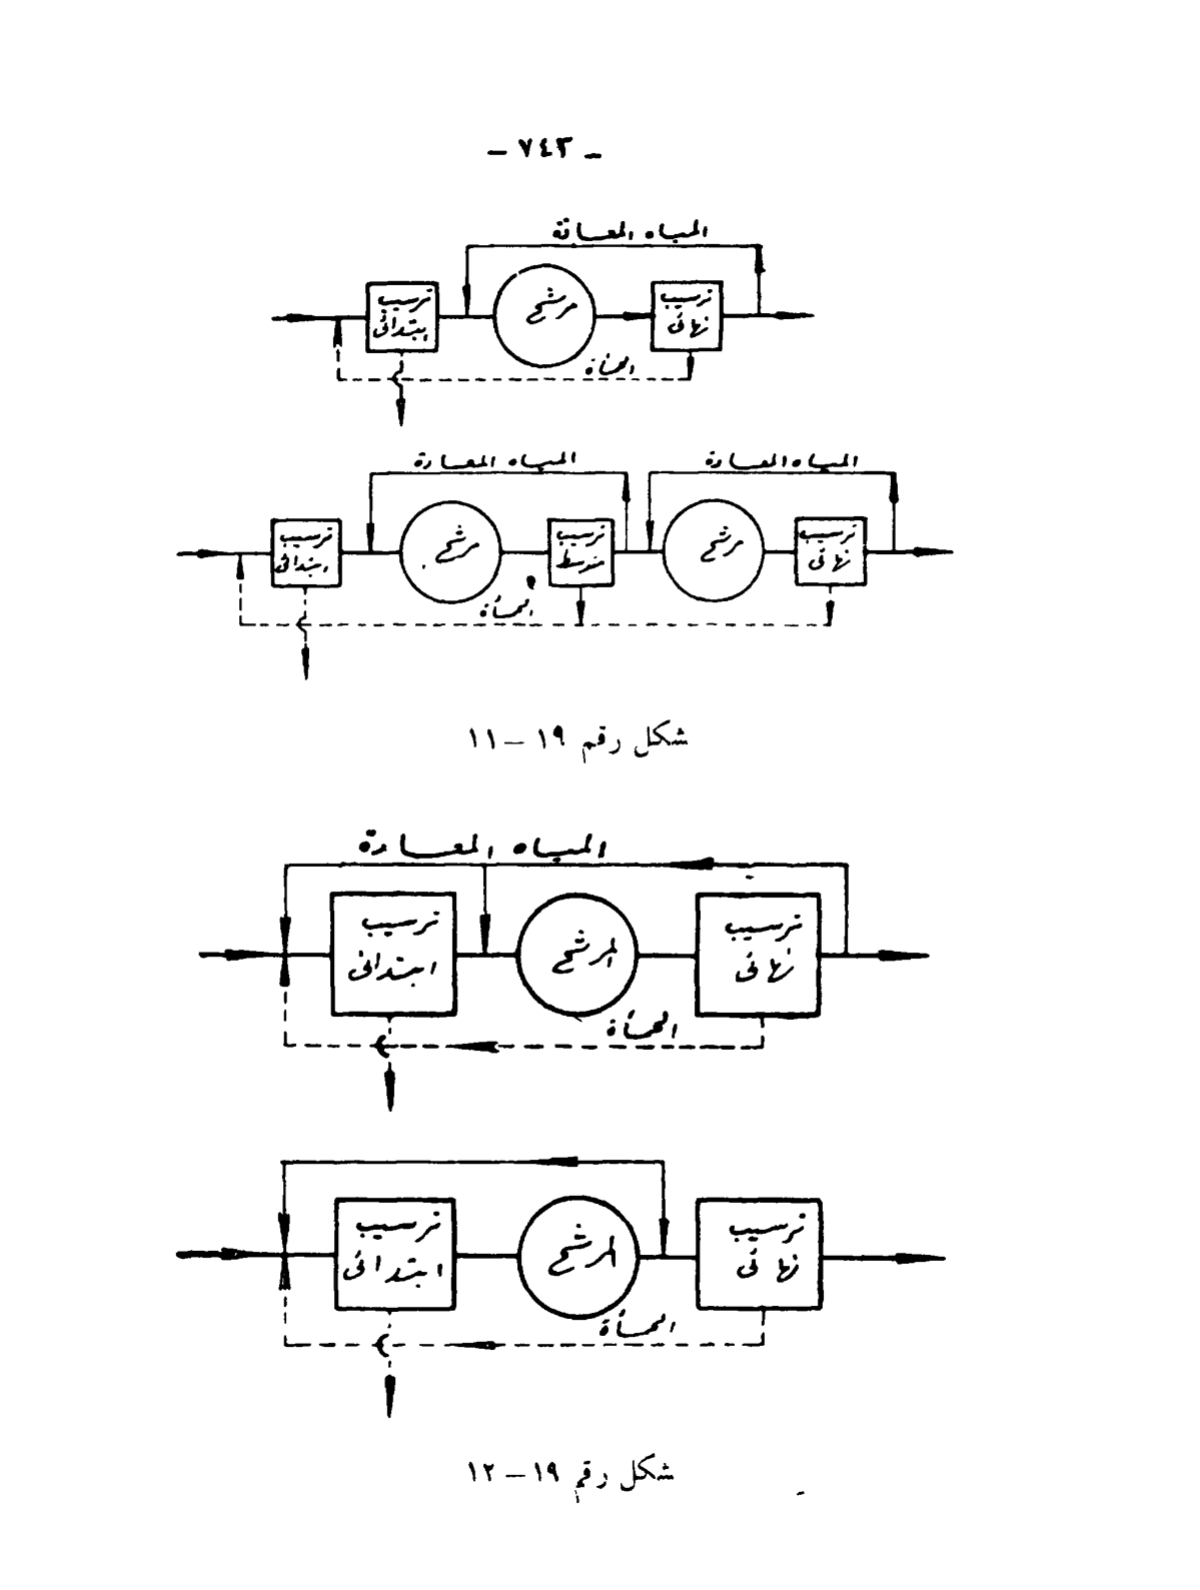 - ٧٤٣ -
المياه المعادة
ترسيب
ابتدائى
مرشح
ترسيب
نهائى
الحمأة
المياه المعادة
المياه المعادة
ترسيب
ابتدائى
مرشح
ترسيب
متوسط
مرشح
ترسيب
نهائى
الحمأة
شكل رقم ١٩ – ١١
المياه المعادة
ترسيب
ابتدائى
المرشح
ترسيب
نهائى
الحمأة
ترسيب
ابتدائى
المرشح
ترسيب
نهائى
الحمأة
شكل رقم ١٩ – ١٢